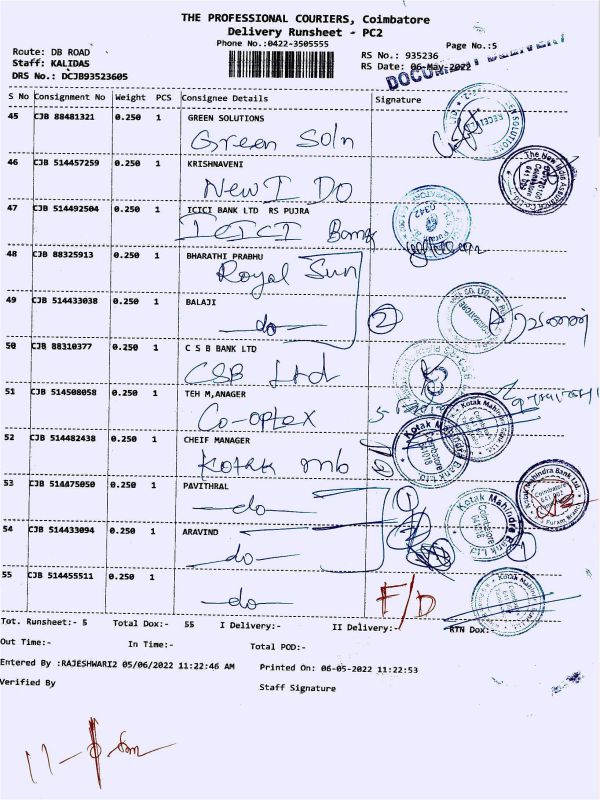 THE PROFESSIONAL COURIERS, Coimbatore
Delivery Runsheet - PC2
Phone No.:0422-3505555
Page No.:5
Route: DB ROAD
RS No.: 935236
Staff: KALIDAS
RS Date: 06-May-2022
DRS No.: DCJB93523605
DOCUMENT DELIVERY
S No Consignment No Weight PCS Consignee Details Signature
45 CJB 88481321 0.250 1 GREEN SOLUTIONS
Green Soln
46 CJB 514457259 0.250 1 KRISHNAVENI
New I Do
47 CJB 514492504 0.250 1 ICICI BANK LTD RS PUJRA
ICICI Bank
48 CJB 88325913 0.250 1 BHARATHI PRABHU
Royal Sun
49 CJB 514433038 0.250 1 BALAJI
do 2
50 CJB 88310377 0.250 1 C S B BANK LTD
CSB Ltd
51 CJB 514508058 0.250 1 TEH M,ANAGER
Co-optex
52 CJB 514482438 0.250 1 CHEIF MANAGER
Kotak mb
53 CJB 514475050 0.250 1 PAVITHRAL
do
54 CJB 514433094 0.250 1 ARAVIND
do
55 CJB 514455511 0.250 1
do F/D
Kotak Mahindra Bank Ltd.
Coimbatore
Tot. Runsheet:- 5 Total Dox:- 55 I Delivery:- II Delivery:- RTN Dox:-
Out Time:- In Time:- Total POD:-
Entered By :RAJESHWARI2 05/06/2022 11:22:46 AM Printed On: 06-05-2022 11:22:53
Verified By Staff Signature